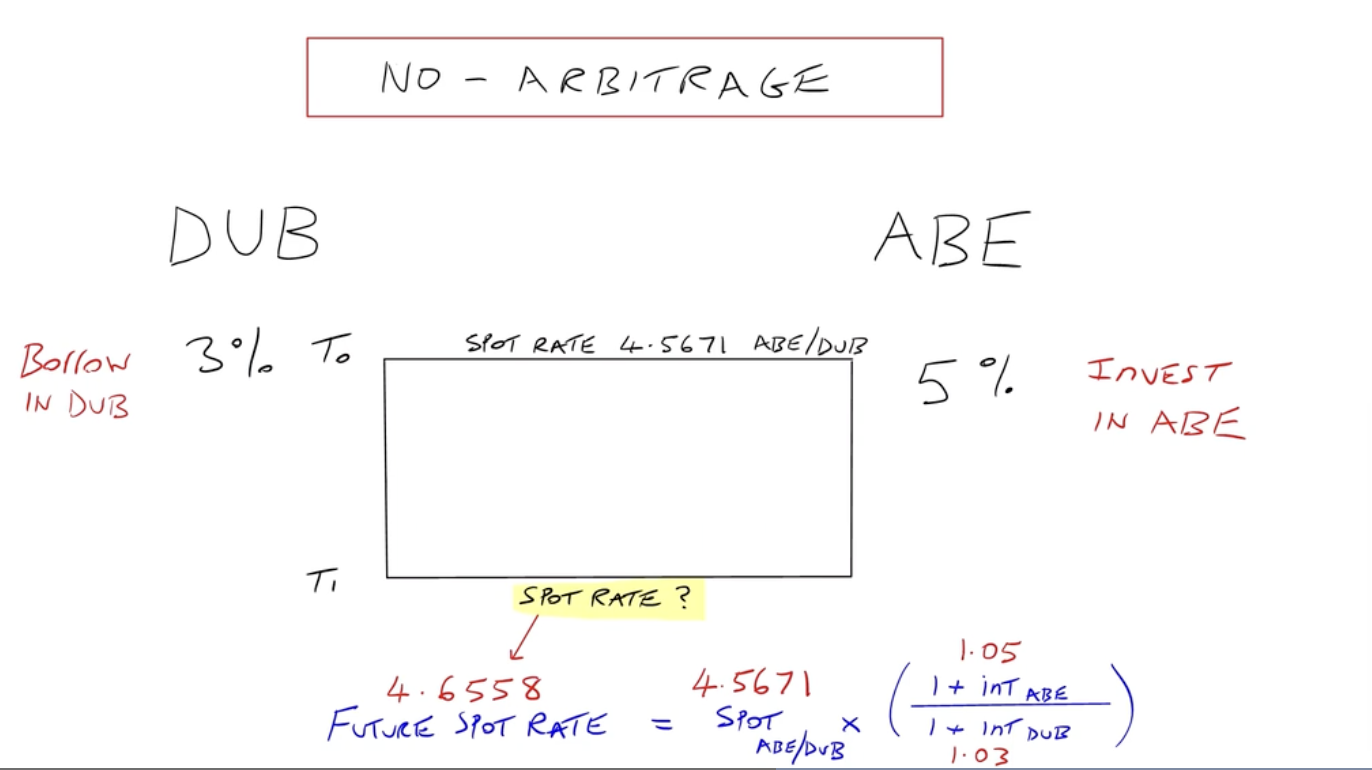 NO - ARBITRAGE
DUB
ABE
Borrow
IN DUB
3%
T0
SPOT RATE 4.5671 ABE/DUB
5%
INVEST
IN ABE
T1
SPOT RATE ?
4.6558
FUTURE SPOT RATE
=
4.5671
SPOT
ABE/DUB
×
1.05
( 1 + INT ABE
1 + INT DUB )
1.03